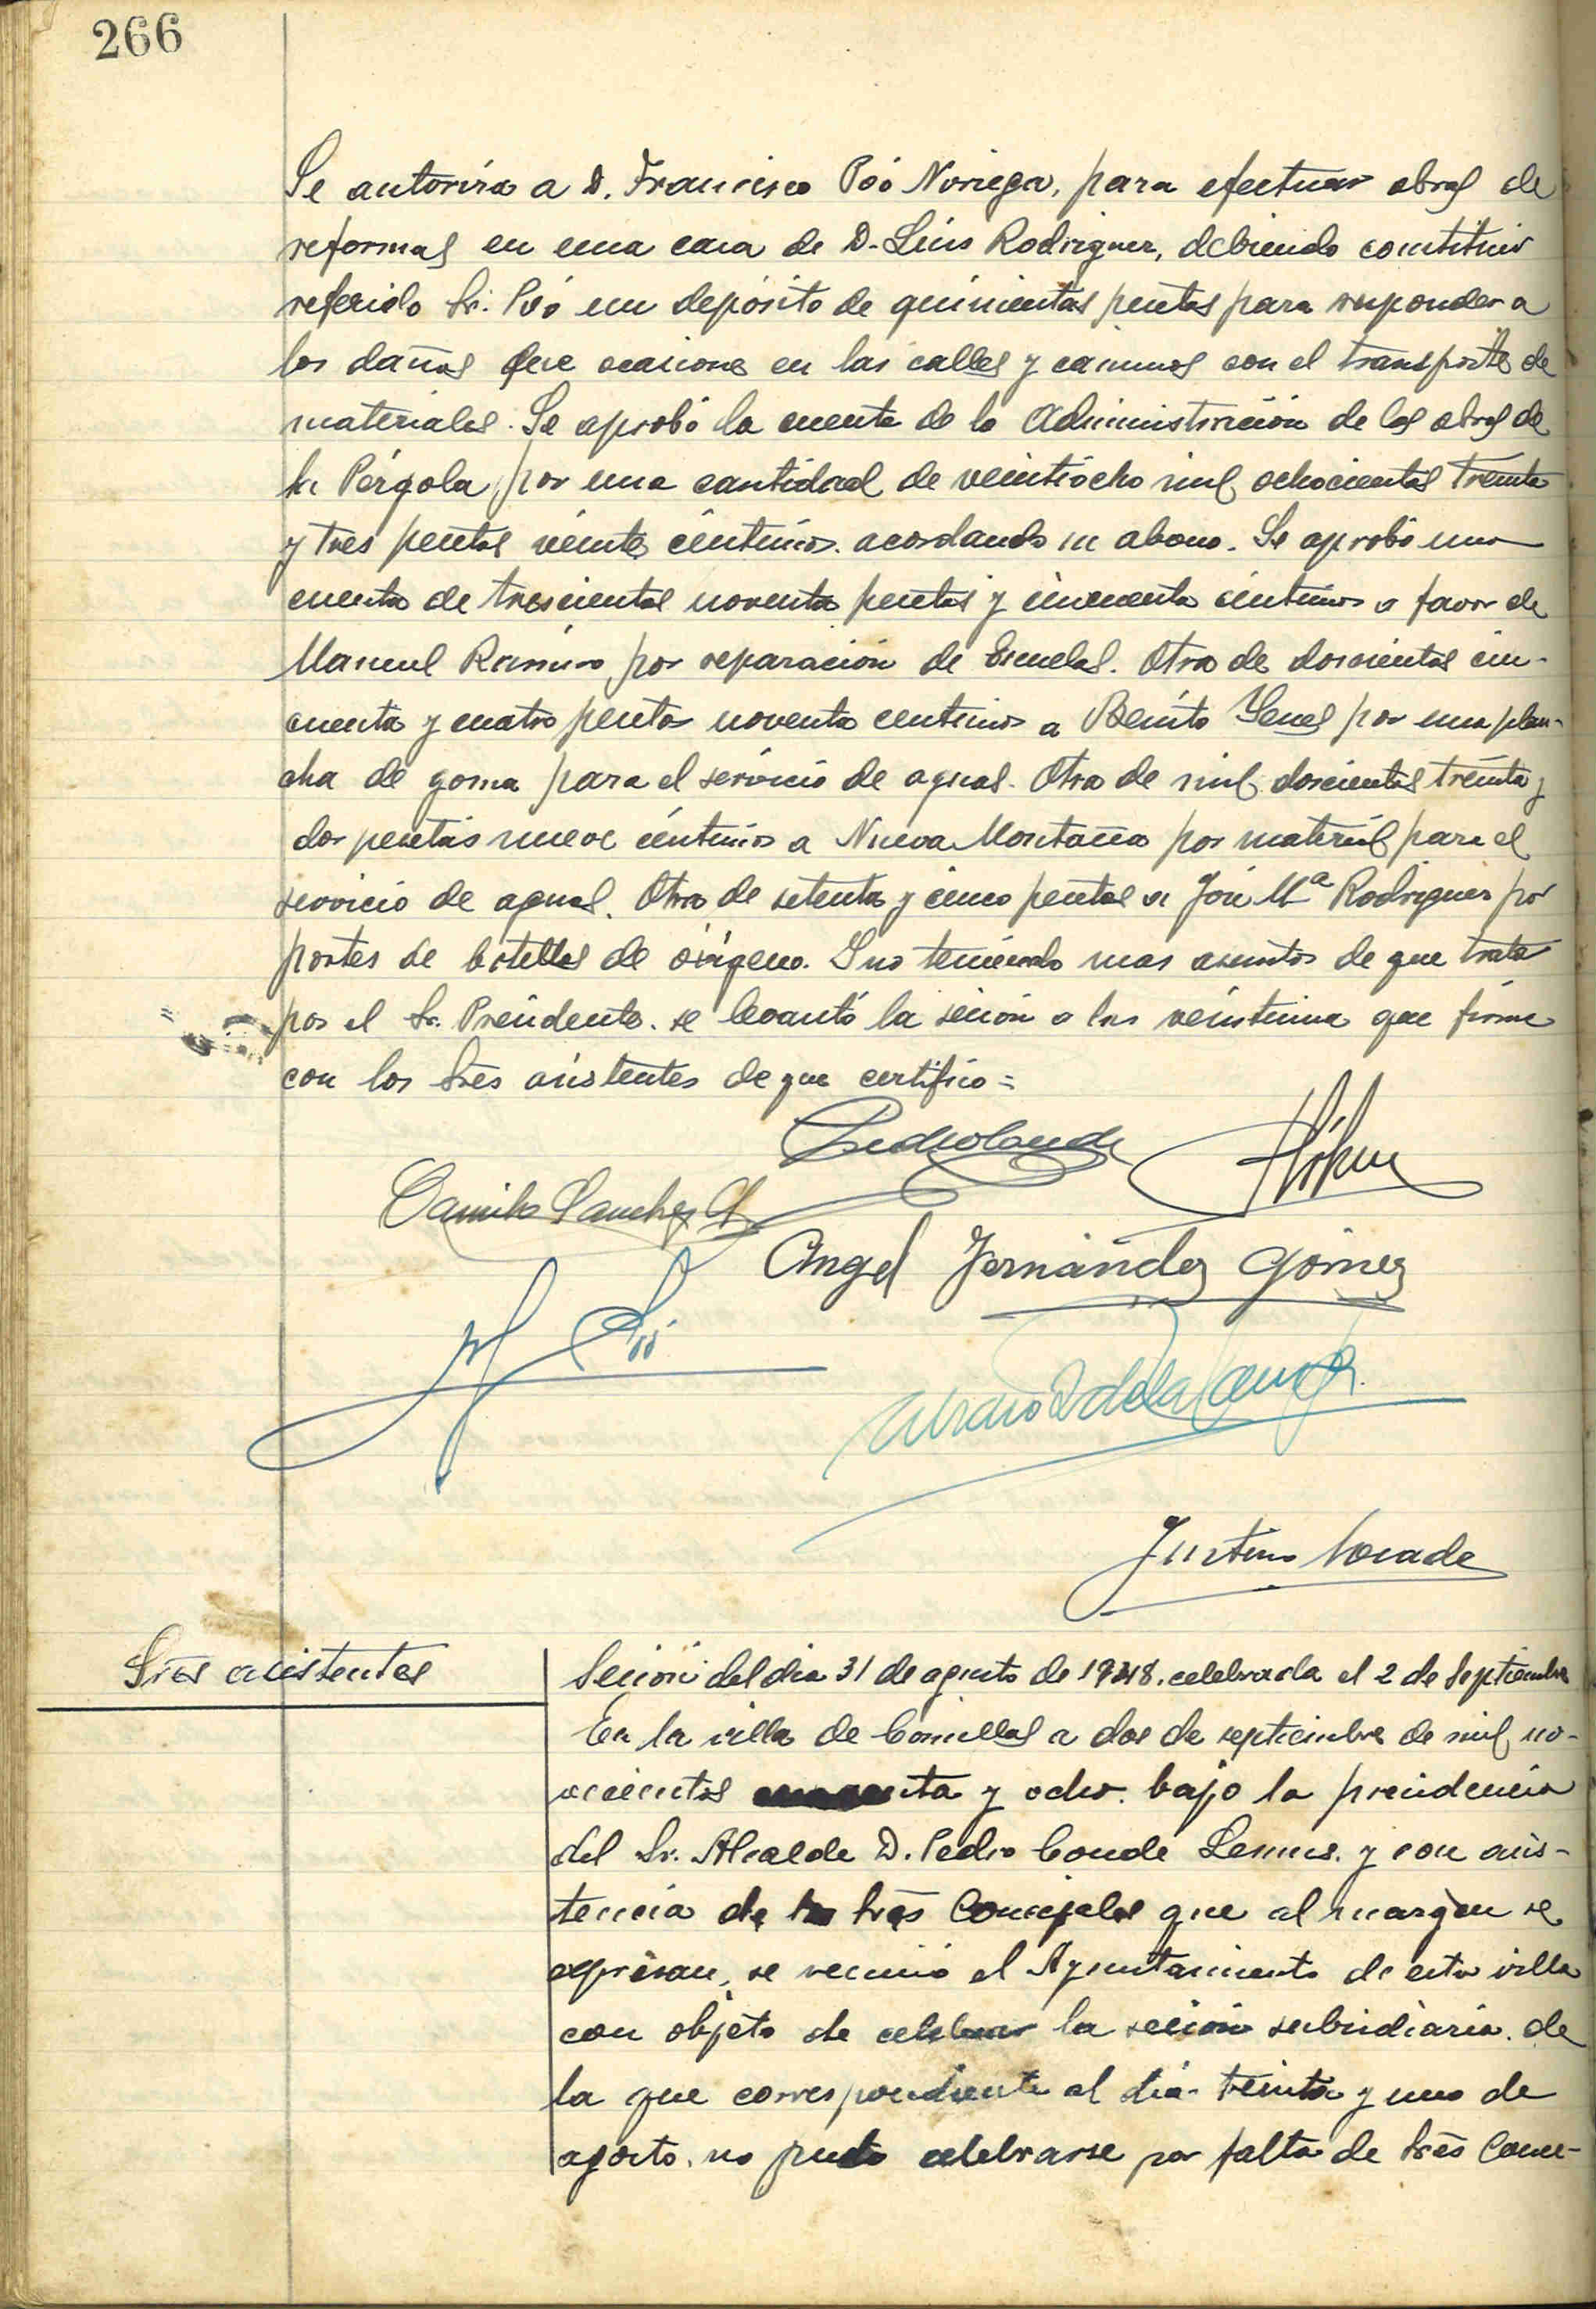 266
Se autoriza a D. Francisco Poó Noriega, para efectuar obras de
reformas en una casa de D. Luis Rodriguez, debiendo constituir
referido Sr. Poó un depósito de quinientas pesetas para responder a
los daños que ocasione en las calles y caminos con el transporte de
materiales. Se aprobó la cuenta de la Administración de las obras de
la Pérgola, por una cantidad de veintiocho mil ochocientas treinta
y tres pesetas veinte céntimos. acordando su abono. Se aprobó una
cuenta de trescientas noventa pesetas y cincuenta céntimos a favor de
Manuel Ramiro por reparación de Escuelas. Otra de doscientas cin-
cuenta y cuatro pesetas noventa centimos a Benito Yenes por una plan-
cha de goma para el servicio de aguas. Otra de mil doscientas treinta y
dos pesetas nueve céntimos a Nueva Montaña por material para el
servicio de aguas. Otra de setenta y cinco pesetas a José Mª Rodriguez por
portes de botellas de oxígeno. Y no teniendo mas asuntos de que tratar
por el Sr. Presidente. se levantó la sesión a las veintiuna que firma
con los Sres asistentes de que certifico=
Pedro Conde
Camilo Sanchez
Angel Fernández Gómez
Poó
de la Campa
Justino Posada
Sres asistentes
Sesión del dia 31 de agosto de 1948. celebrada el 2 de Septiembre
En la villa de Comillas a dos de septiembre de mil no-
vecientos cuarenta y ocho. bajo la presidencia
del Sr. Alcalde D. Pedro Conde Lemus. y con asis-
tencia de los Sres Concejales que al margen se
expresan, se reunió el Ayuntamiento de esta villa
con objeto de celebrar la sesión subsidiaria. de
la que correspondiente al dia treinta y uno de
agosto. no pudo celebrarse por falta de Sres Conce-